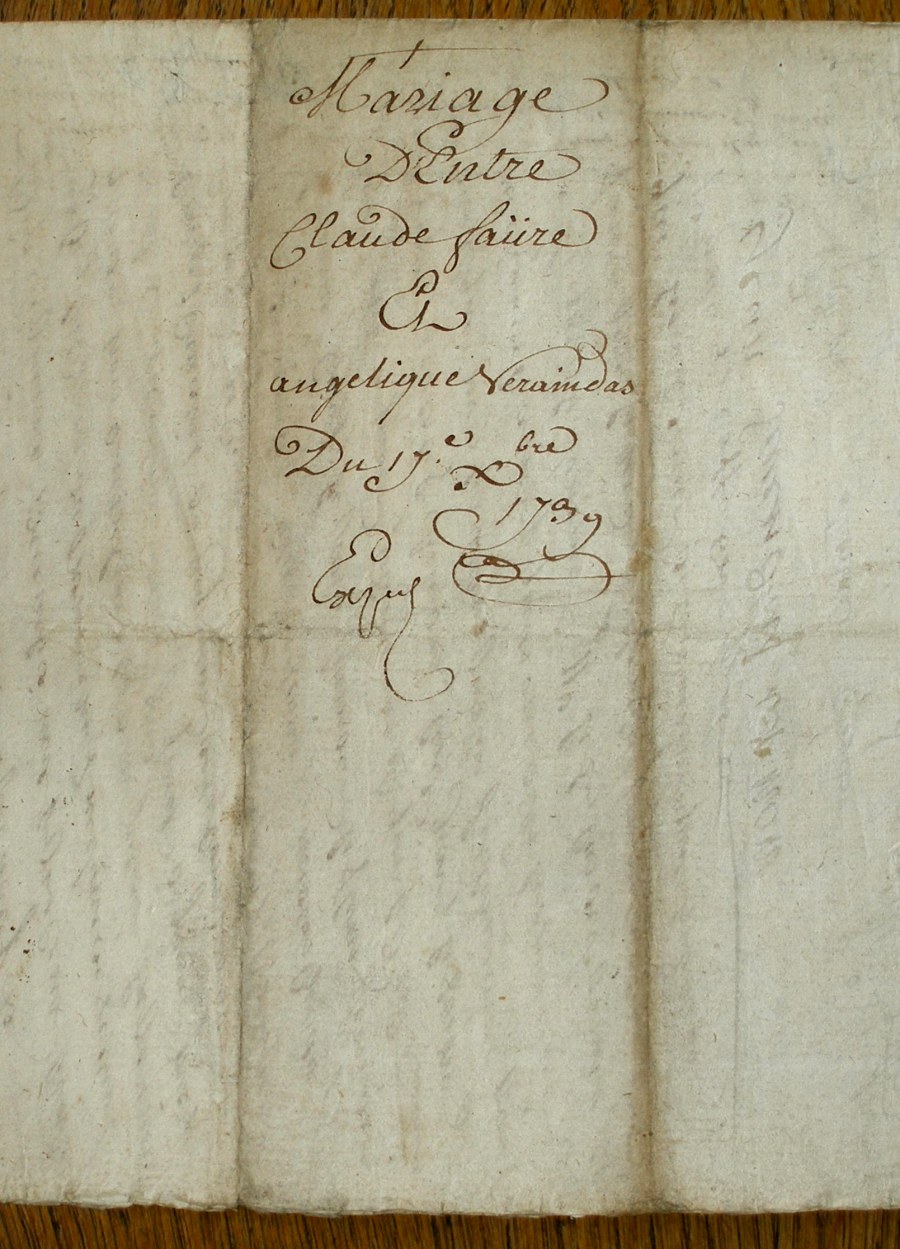 Mariage
D'Entre
Claude faüre
Et
angelique Veraindas
Du 17.e Xbre
1739